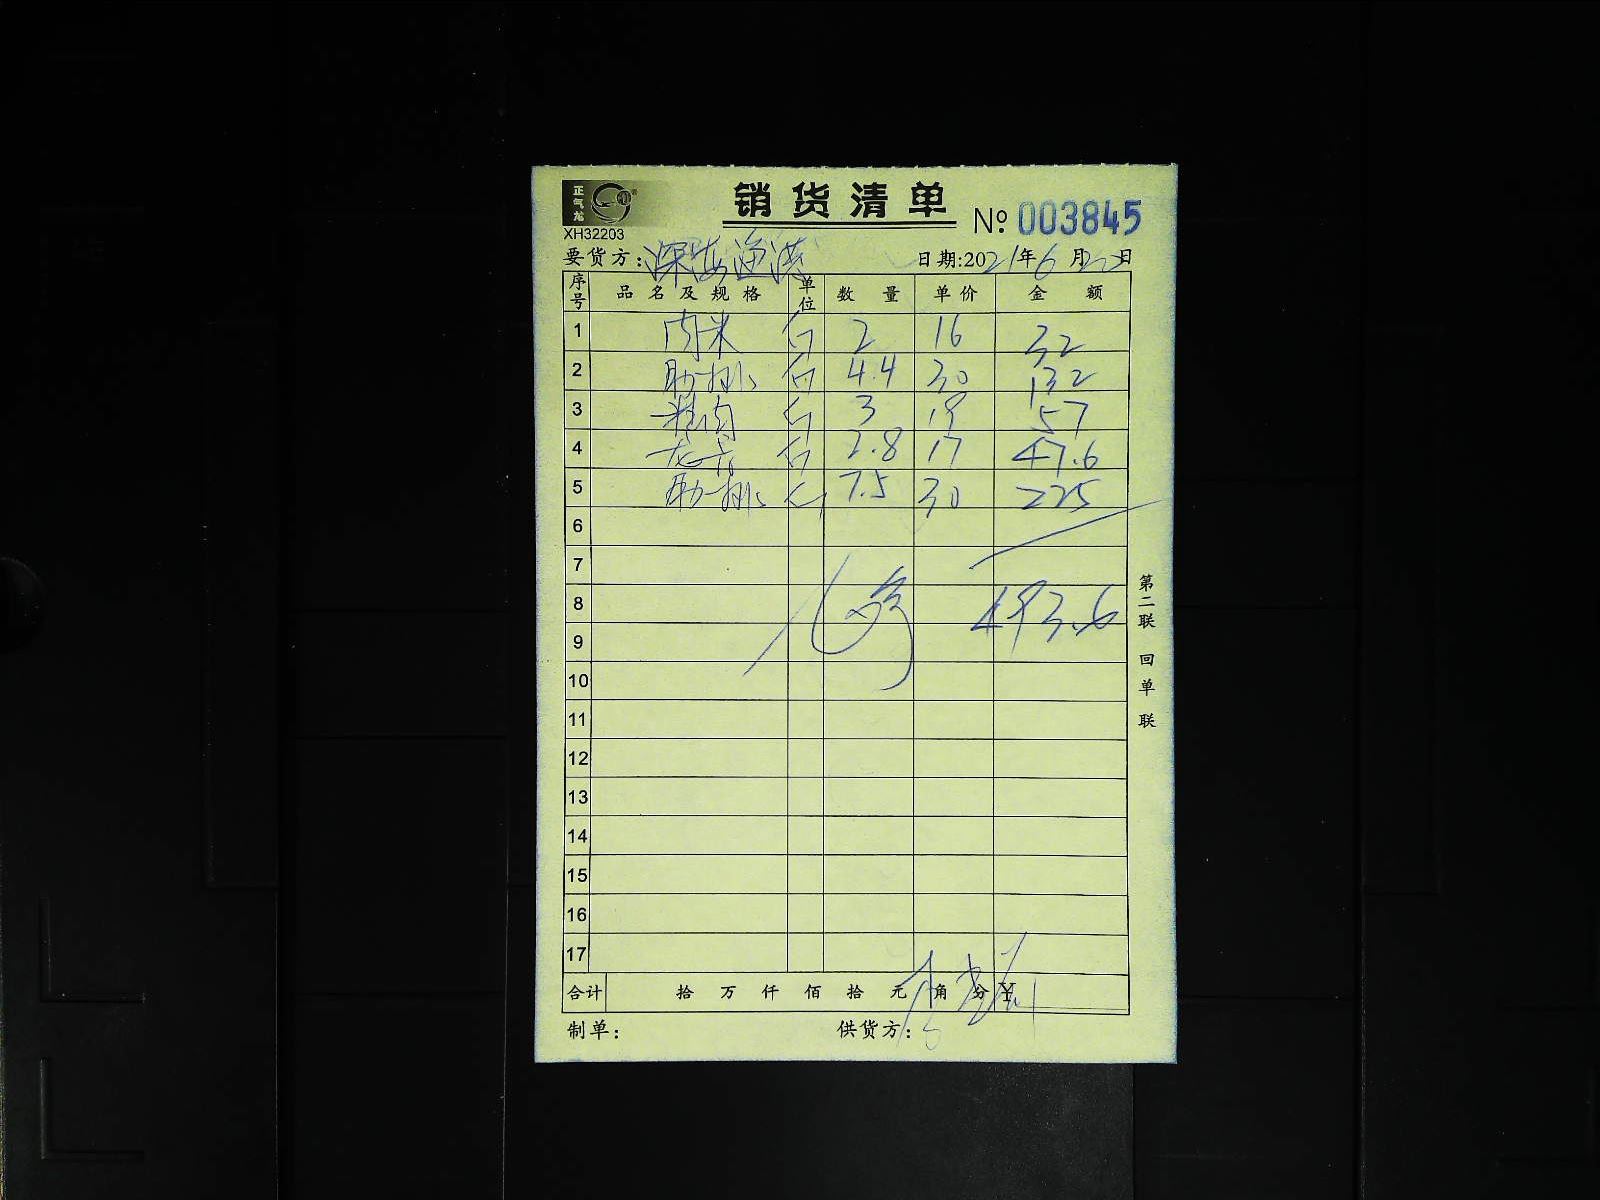 正气龙
销货清单
XH32203
№ 003845
要货方:深海渔港 日期:2021年6月22日
序号 品名及规格 单位 数量 单价 金额
1 肉米 斤 2 16 32
2 肋排 斤 4.4 30 132
3 精肉 斤 3 19 57
4 龙骨 斤 2.8 17 47.6
5 肋排 斤 7.5 30 225
6
7
8 493.6
9
10
11
12
13
14
15
16
17
合计 拾 万 仟 佰 拾 元 角 分 ¥
制单: 供货方:
第二联 回单联